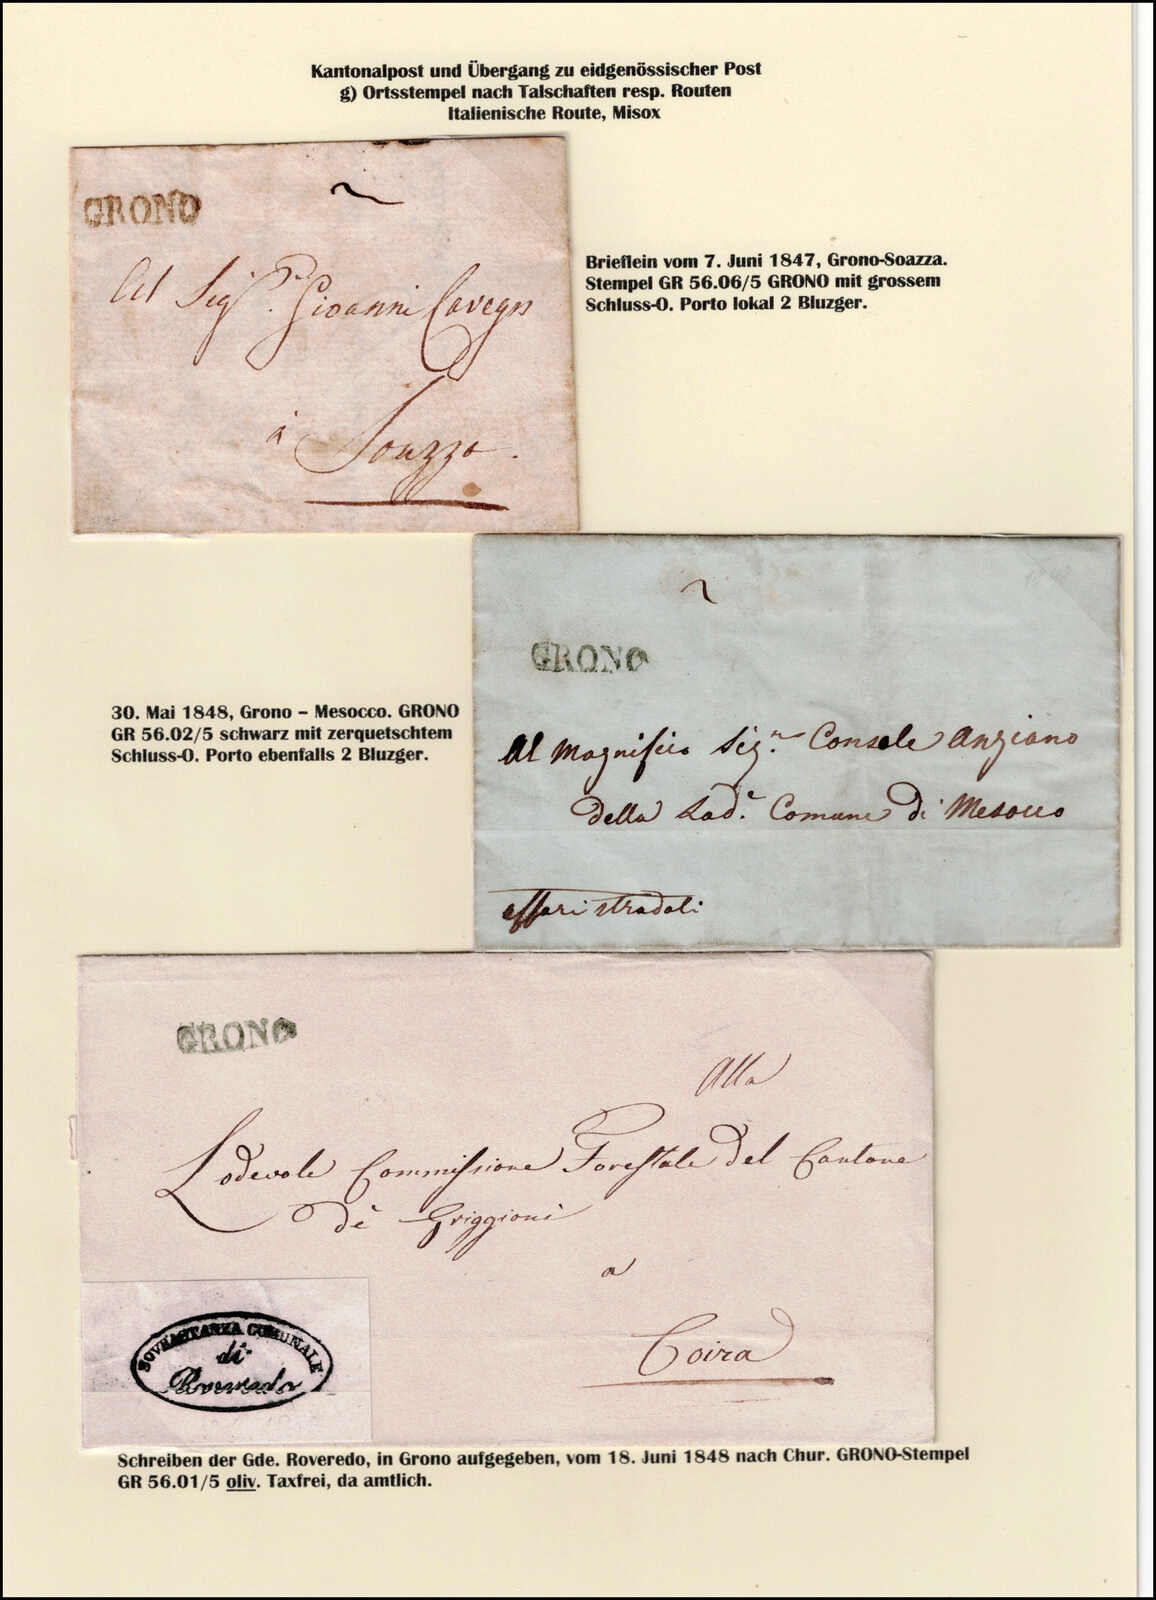 Kantonalpost und Übergang zu eidgenössischer Post
g) Ortsstempel nach Talschaften resp. Routen
Italienische Route, Misox
GRONO
2
Al Sigr. Pe. Gioanni Cavegn
à Souzza.
Brieflein vom 7. Juni 1847, Grono-Soazza.
Stempel GR 56.06/5 GRONO mit grossem
Schluss-O. Porto lokal 2 Bluzger.
2
GRONO
Al Magnifico Sign. Console Anziano
della Lode. Comune di Mesocco
affari stradali
30. Mai 1848, Grono – Mesocco. GRONO
GR 56.02/5 schwarz mit zerquetschtem
Schluss-O. Porto ebenfalls 2 Bluzger.
GRONO
Alla
Lodevole Commissione Forestale del Cantone
dè Griggioni
a
Coira
SOVRASTANZA COMUNALE
di
Roveredo
Schreiben der Gde. Roveredo, in Grono aufgegeben, vom 18. Juni 1848 nach Chur. GRONO-Stempel
GR 56.01/5 oliv. Taxfrei, da amtlich.